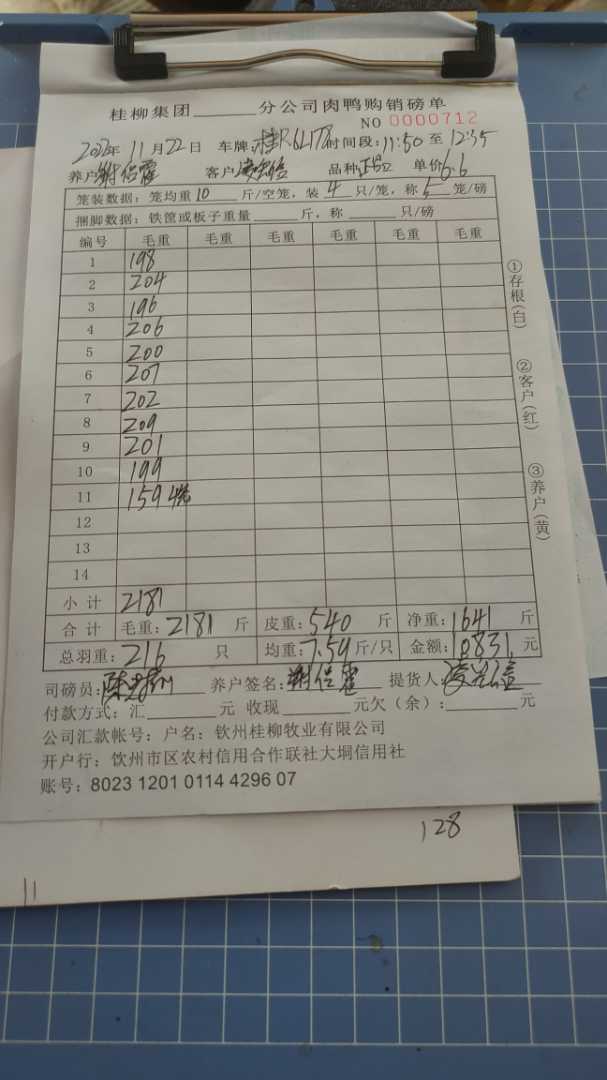 桂柳集团______分公司肉鸭购销磅单
NO 0000712
2022年 11月22日 车牌:桂R6L178 时间段:11:50 至 12:35
养户 客户 品种 单价6.6
笼装数据:笼均重 10 斤/空笼,装 4 只/笼,称 5 笼/磅
捆脚数据:铁筐或板子重量______斤,称______只/磅
编号 毛重 毛重 毛重 毛重 毛重
1 198
2 204
3 196
4 206
5 200
6 207
7 202
8 209
9 201
10 199
11 159 4笼
12
13
14
小计 2181
合计 毛重:2181 斤 皮重:540 斤 净重:1641 斤
总羽重:216 只 均重:7.59斤/只 金额:10831 元
司磅员: 养户签名: 提货人:
付款方式:汇______元 收现______元欠(余):______元
公司汇款帐号:户名:钦州桂柳牧业有限公司
开户行:饮州市区农村信用合作联社大垌信用社
账号:8023 1201 0114 4296 07
①存根(白)
②客户(红)
③养户(黄)
128
11